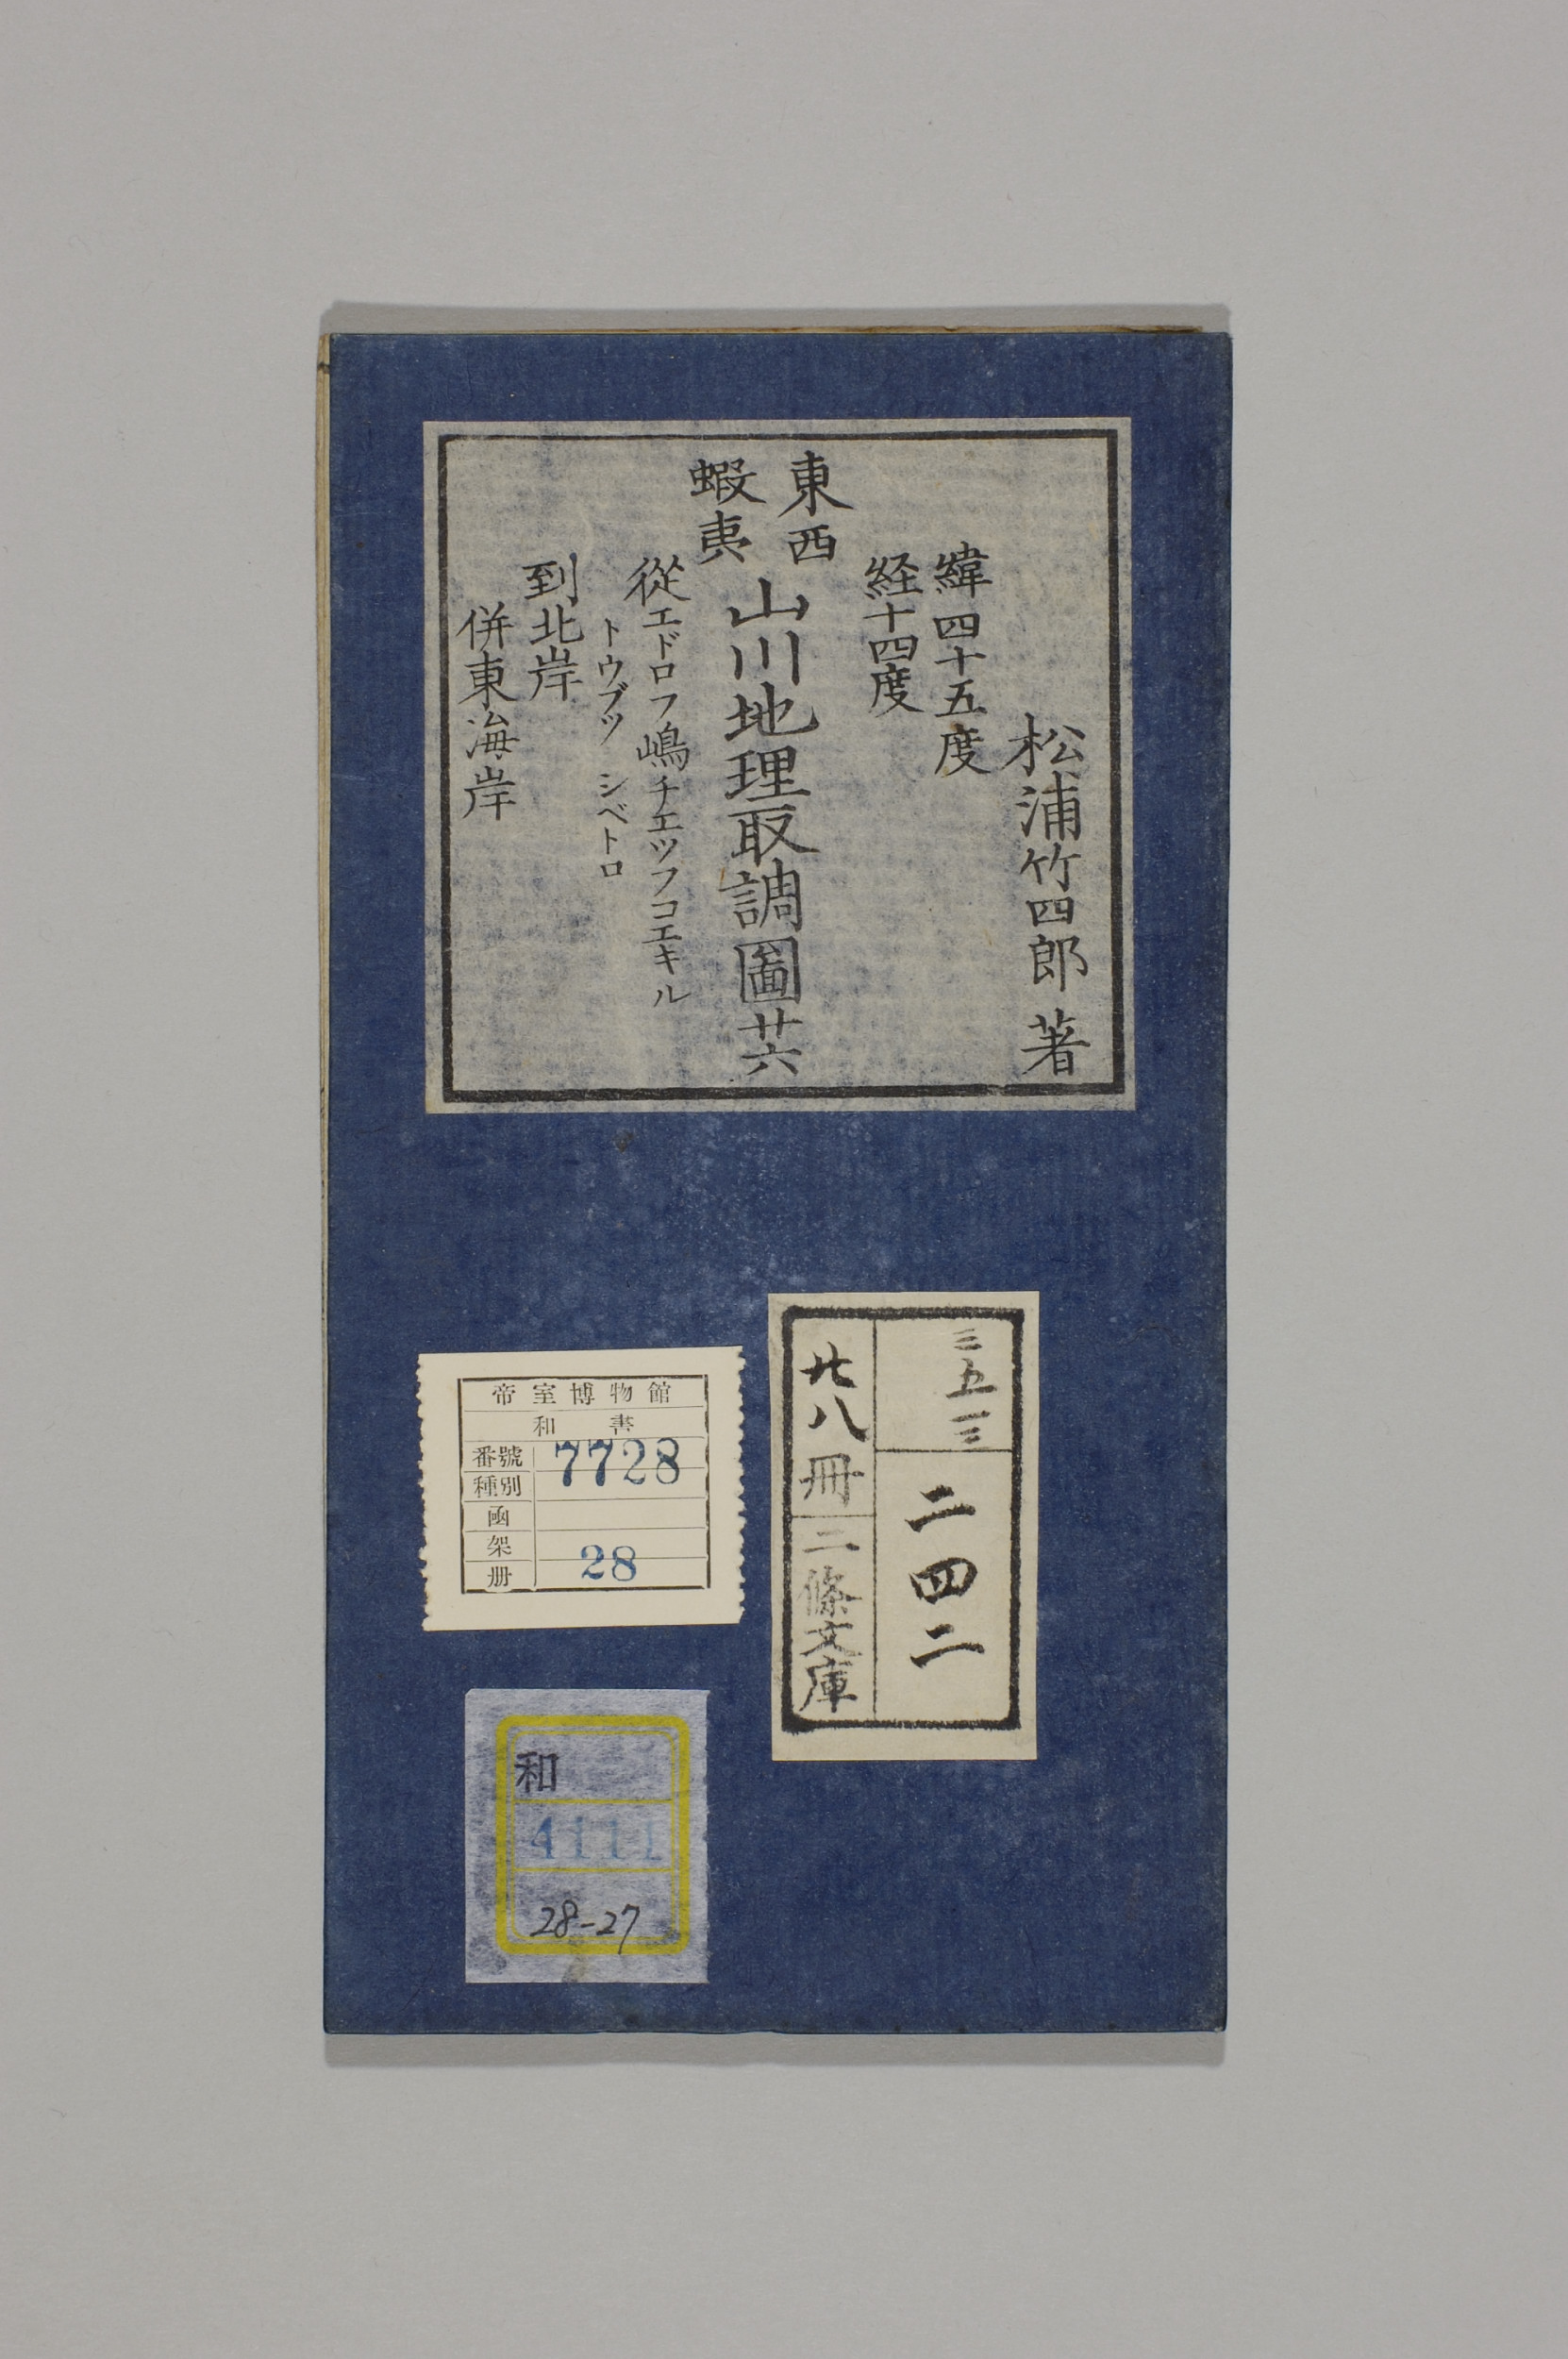 松浦竹四郎 著
緯四十五度
経十四度
東西
蝦夷
山川地理取調圖廿六
従エドロフ嶋チエツフコエキル
トウブツ シベトロ
到北岸
併東海岸
二四二
廿八冊
二條文庫
帝室博物館
和書
番號 7728
種別
凾
架
册 28
和
4111
28-27